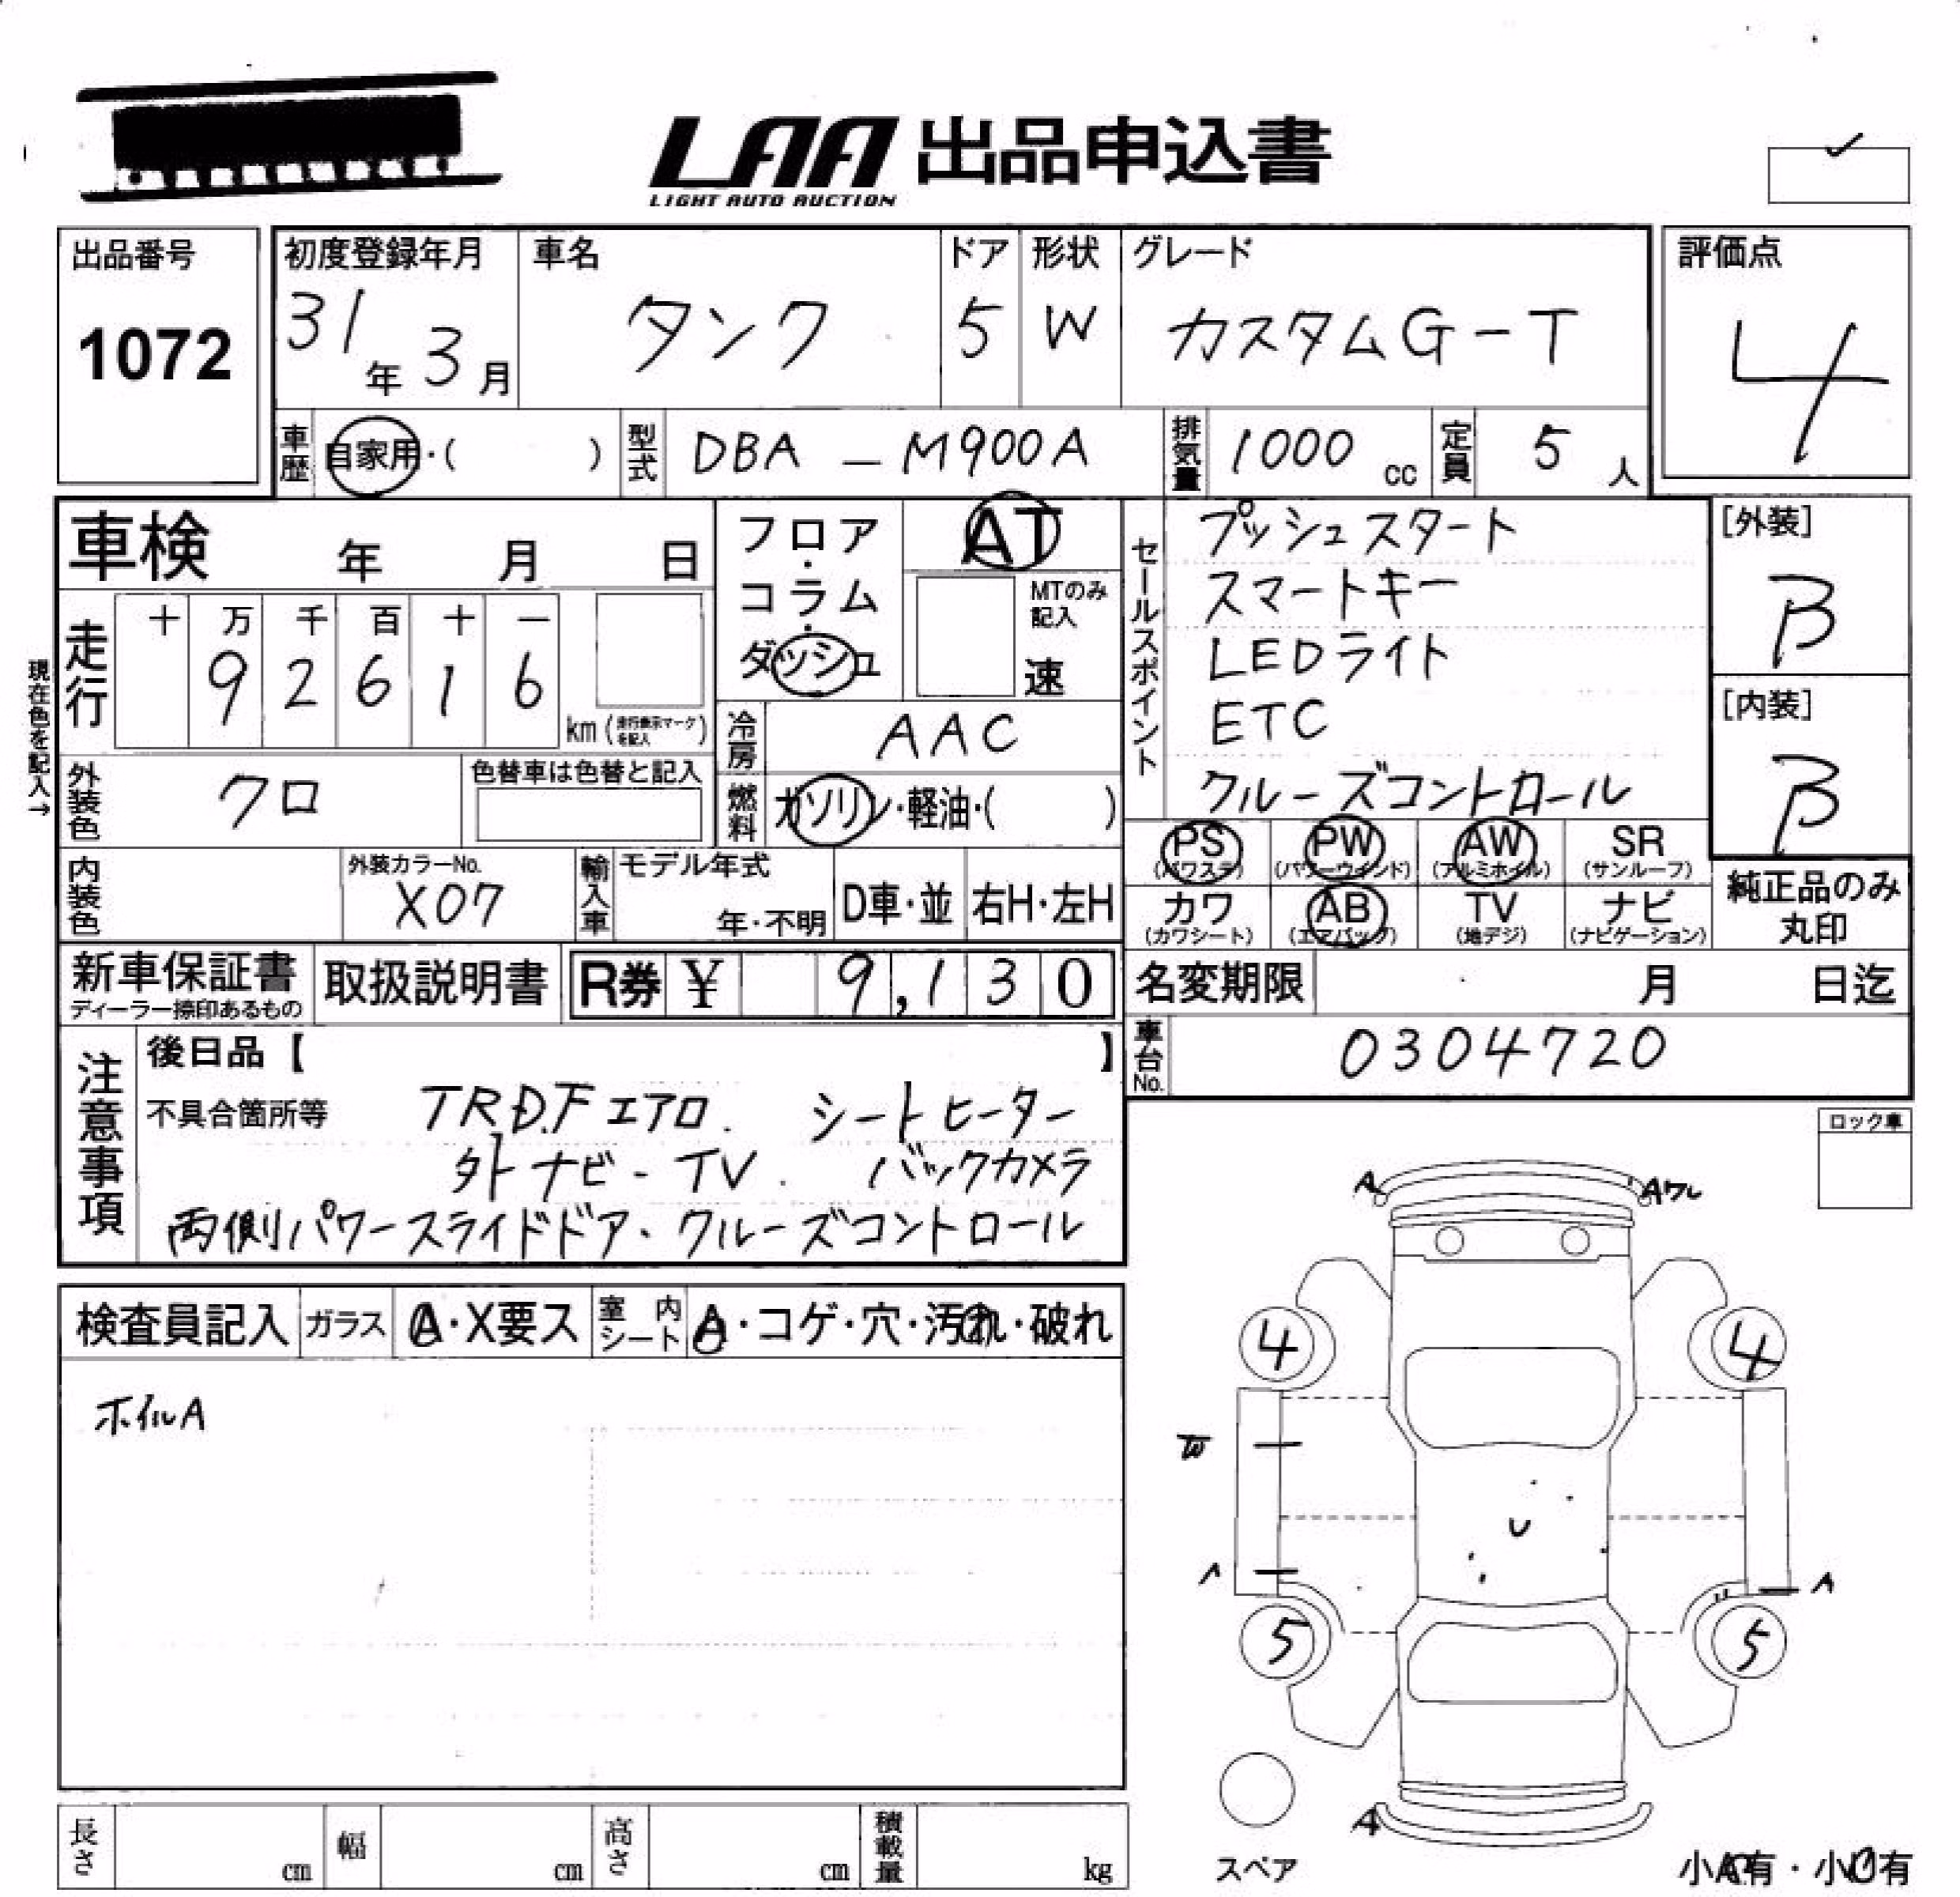 LAA 出品申込書
LIGHT AUTO AUCTION
出品番号
1072
初度登録年月
31年3月
車名
タンク
ドア
5
形状
W
グレード
カスタムG-T
評価点
4
車歴
自家用・( )
型式
DBA - M900A
排気量
1000 cc
定員
5人
車検 年 月 日
フロア・コラム・ダッシュ
AT
MTのみ記入
速
セールスポイント
プッシュスタート
スマートキー
LEDライト
ETC
クルーズコントロール
[外装]
B
[内装]
B
現在色を記入→
走行
十 万 千 百 十 一
9 2 6 1 6
km (走行表示マークを記入)
冷房
AAC
外装色
クロ
色替車は色替と記入
燃料
ガソリン・軽油・( )
PS (パワステ)
PW (パワーウインド)
AW (アルミホイル)
SR (サンルーフ)
カワ (カワシート)
AB (エアバッグ)
TV (地デジ)
ナビ (ナビゲーション)
純正品のみ丸印
内装色
外装カラーNo.
X07
輸入車
モデル年式
年・不明
D車・並
右H・左H
新車保証書
ディーラー捺印あるもの
取扱説明書
R券 ¥ 9,130
名変期限 月 日迄
車台No.
0304720
注意事項
後日品【 】
不具合箇所等
TRD.Fエアロ. シートヒーター
外ナビ-TV. バックカメラ
両側パワースライドドア・クルーズコントロール
ロック車
A Aワレ
検査員記入
ガラス
A・X要ス
室内シート
A・コゲ・穴・汚れ・破れ
ホイルA
4 4
W
U
A
5 5
A
スペア
小A有・小U有
長さ cm
幅 cm
高さ cm
積載量 kg